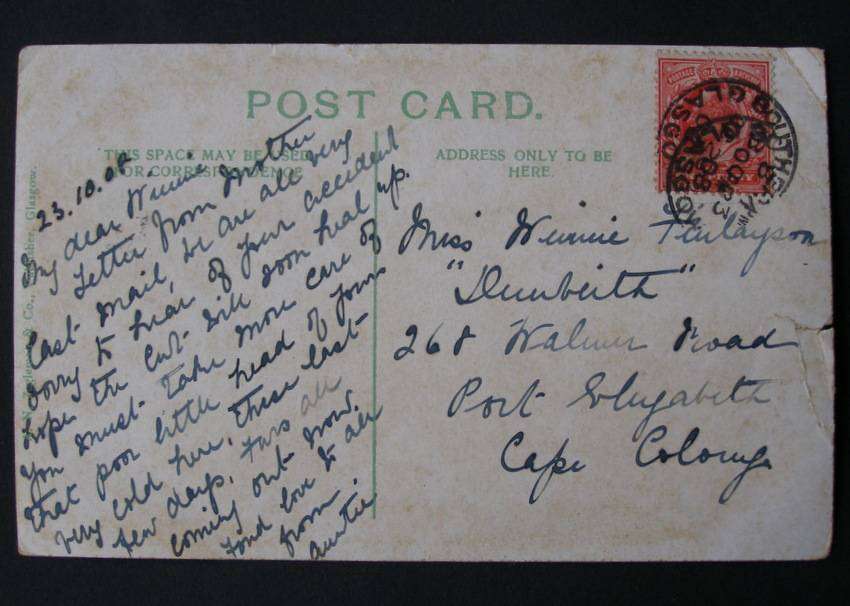 POST CARD.
THIS SPACE MAY BE USED
FOR CORRESPONDENCE
ADDRESS ONLY TO BE
HERE.
23.10.08
My dear Winnie
Letter from Mother
last mail, we are all very
sorry to hear of your accident
hope the cut will soon heal up.
You must take more care of
that poor little head of yours
very cold here, these last
few days, furs all
coming out now.
Fond love to all
from
Auntie
Miss Winnie Finlayson
"Dunbeith"
268 Walmer Road
Port Elizabeth
Cape Colony
& Co., Glasgow.
GLASGOW